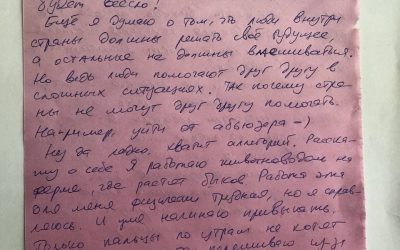 будет весело!
Ещё я думаю о том, что люди внутри
страны должны решать своё будущее,
а остальные не должны вмешиваться.
Но ведь люди помогают друг другу в
сложных ситуациях. Так почему стра-
ны не могут друг другу помогать.
Например, уйти от абьюзера =)
Ну да ладно, хватит аллегорий. Расска-
жу о себе. Я работаю животноводом на
ферме, где растят быков. Работа эта
для меня физически трудная, но я справ-
ляюсь. И уже начинаю привыкать.
Только пальцы по утрам не хотят